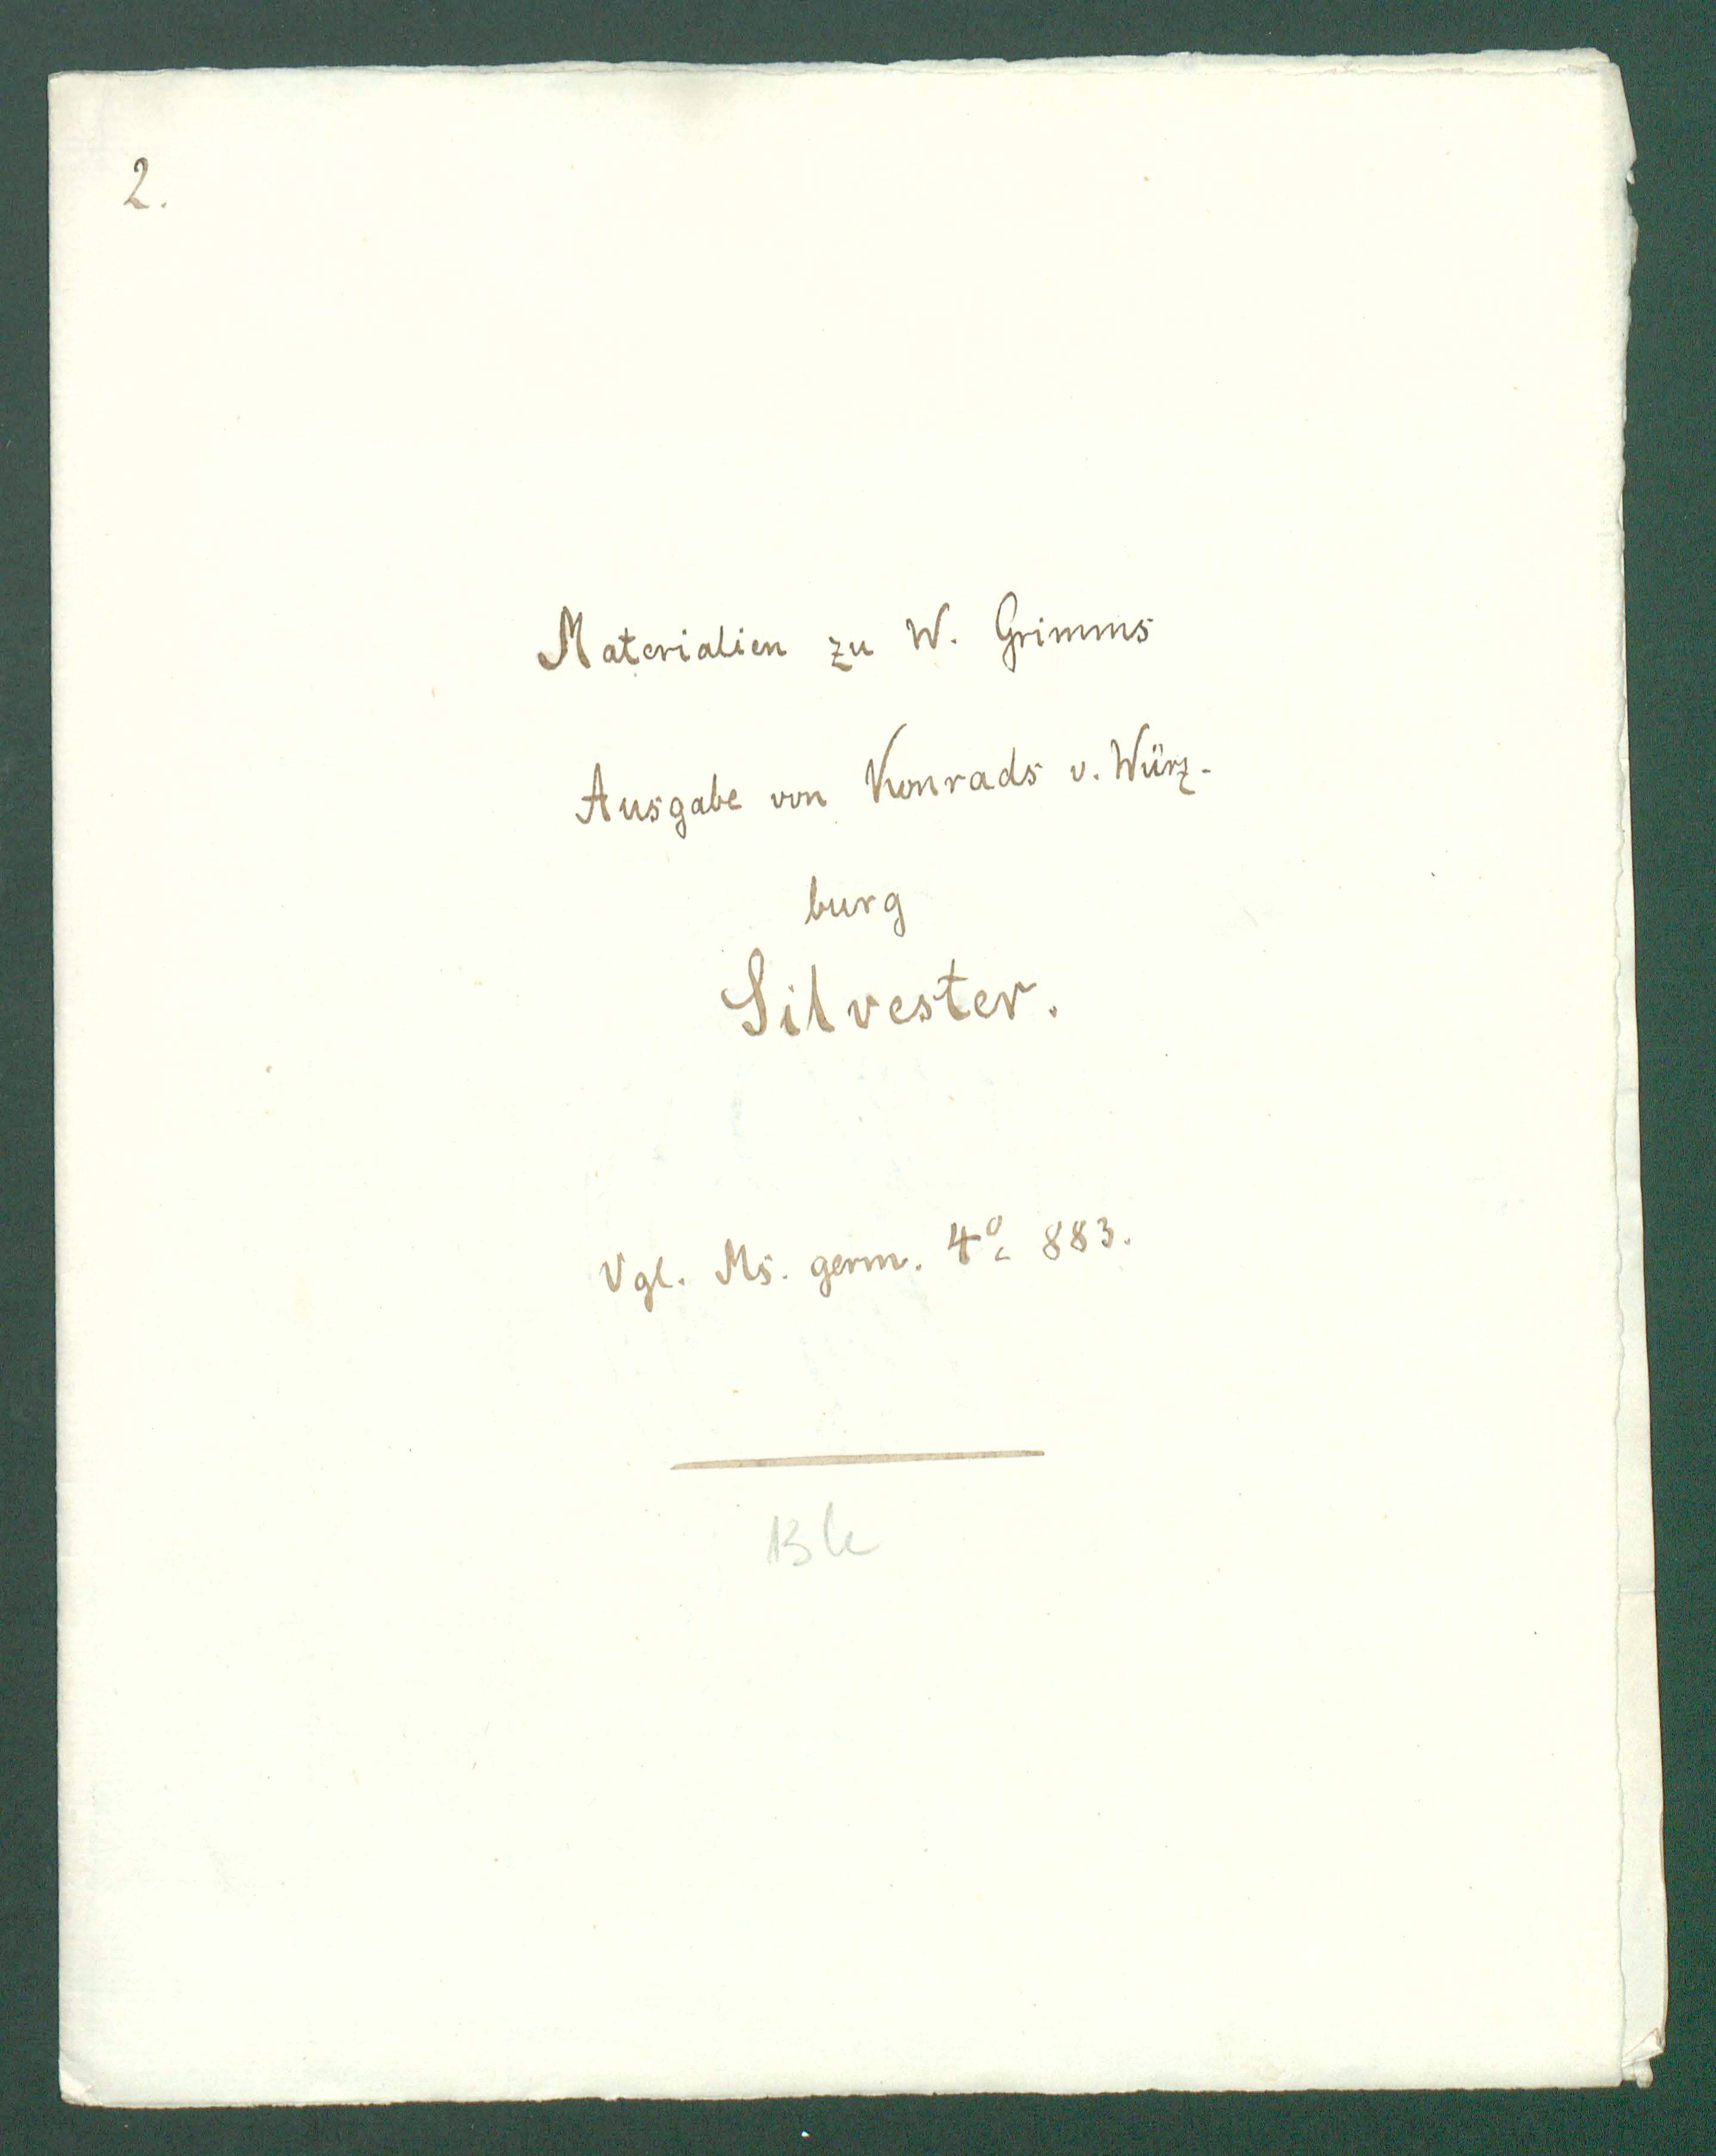 2.
Materialien zu W. Grimms
Ausgabe von Konrads v. Würz-
burg
Silvester.
Vgl. Ms. germ. 4º 883.
Bk